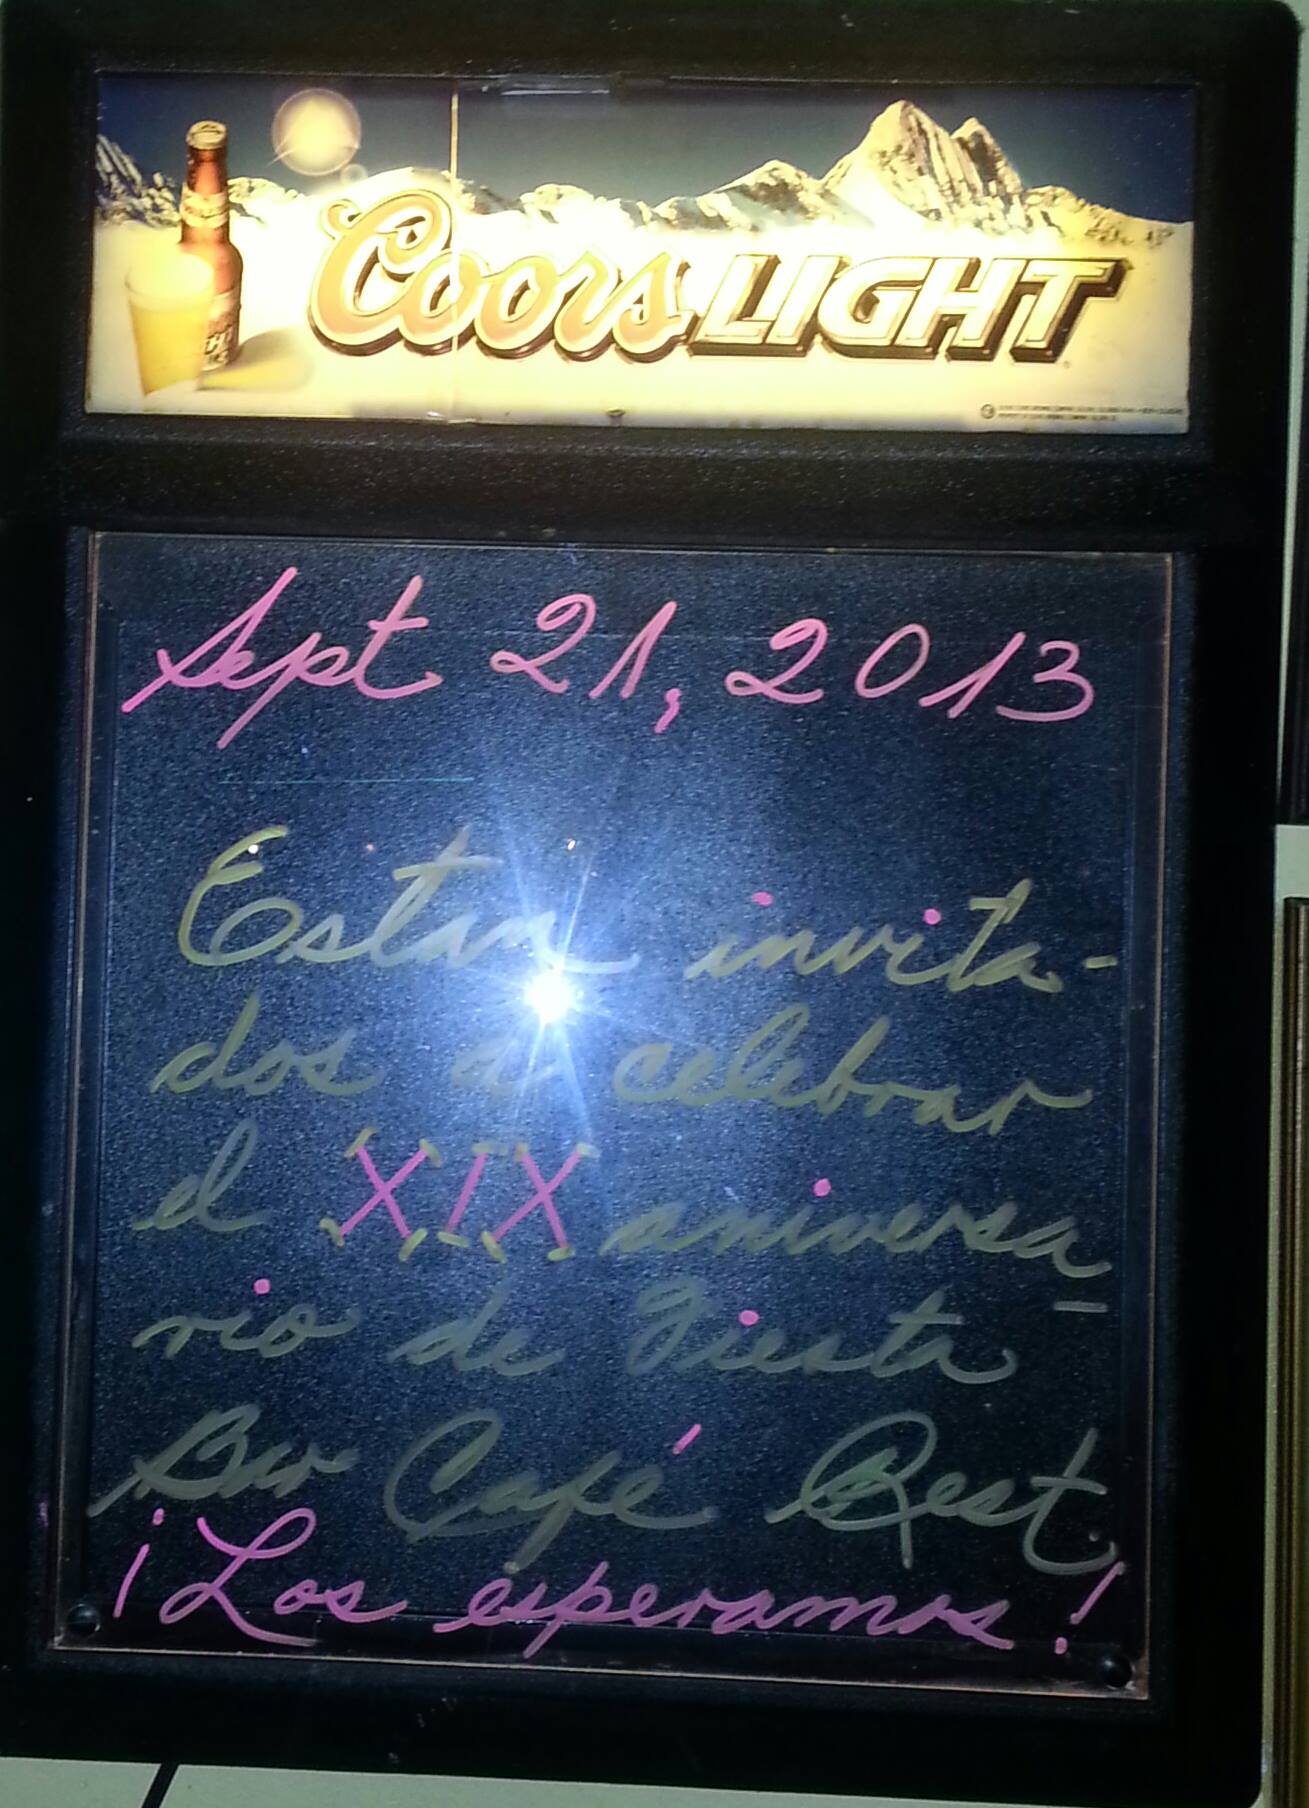 Coors LIGHT
Sept 21, 2013
Estan invita-
dos a celebrar
el XIX aniversa-
rio de Fiesta
Bar Café Rest.
¡Los esperamos!